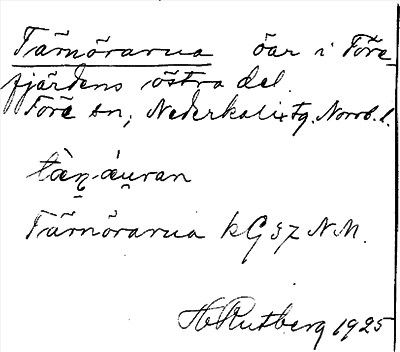 Tärnörarna öar i Töre
fjärdens östra del.
Töre sn, Nederkalix tg. Norrb. l.
Tärnörarna kG 37 NM.
H Rutberg 1925